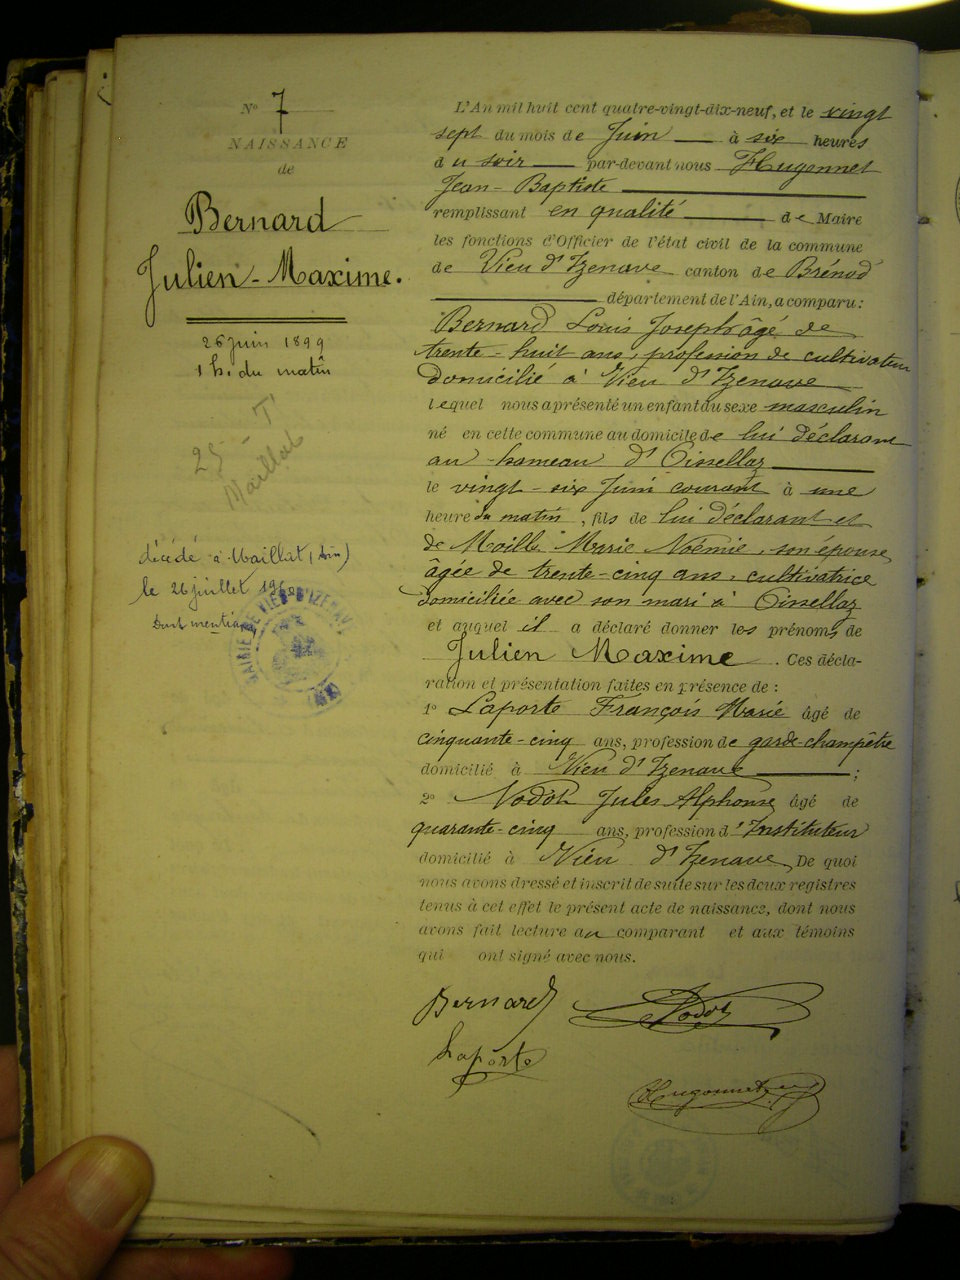 N° 7
NAISSANCE
de
Bernard
Julien-Maxime.
26 juin 1899
1 h. du matin
25 - T
Maillat
décédé à Maillat (Ain)
le 26 juillet
Dont mention
MAIRIE DE VIEU D'IZENAVE
L'An mil huit cent quatre-vingt-dix-neuf, et le vingt
sept du mois de Juin à six heures
du soir par-devant nous Hugonnet
Jean-Baptiste
remplissant en qualité de Maire
les fonctions d'Officier de l'état civil de la commune
de Vieu d'Izenave canton de Brénod
département de l'Ain, a comparu :
Bernard Louis Joseph âgé de
trente-huit ans, profession de cultivateur
domicilié à Vieu d'Izenave
lequel nous a présenté un enfant du sexe masculin
né en cette commune au domicile de lui déclarant
au hameau d'Oissellaz
le vingt-six Juin courant à une
heure du matin, fils de lui déclarant et
de Moille Marie Noémie, son épouse,
âgée de trente-cinq ans, cultivatrice
domiciliée avec son mari à Oissellaz
et auquel il a déclaré donner les prénoms de
Julien Maxime. Ces décla-
ration et présentation faites en présence de :
1° Laporte François Marie âgé de
cinquante-cinq ans, profession de garde-champêtre
domicilié à Vieu d'Izenave ;
2° Nodot Jules Alphonse âgé de
quarante-cinq ans, profession d'Instituteur
domicilié à Vieu d'Izenave, De quoi
nous avons dressé et inscrit de suite sur les deux registres
tenus à cet effet le présent acte de naissance, dont nous
avons fait lecture au comparant et aux témoins
qui ont signé avec nous.
Bernard Nodot
Laporte
Hugonnet